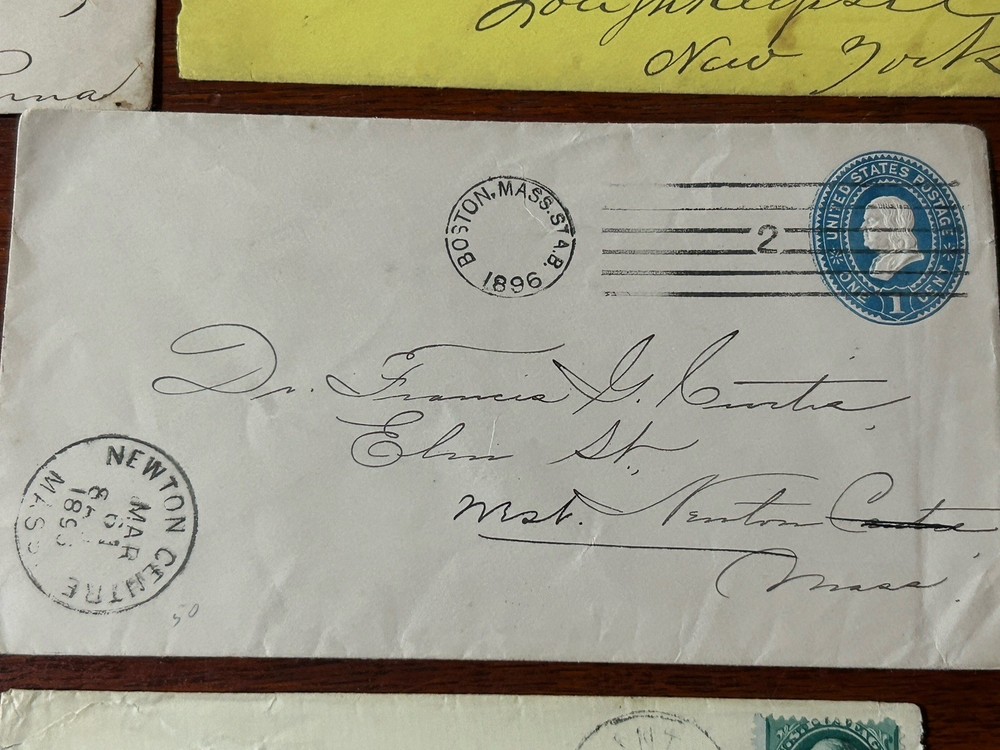 Poughkeepsie
New York
BOSTON, MASS. STA.B.
1896
2
UNITED STATES POSTAGE
ONE 1 CENT
Dr. Francis G. Curtis,
Elm St.,
West. Newton Centre
Mass.
NEWTON CENTRE
MASS.
MAR
50